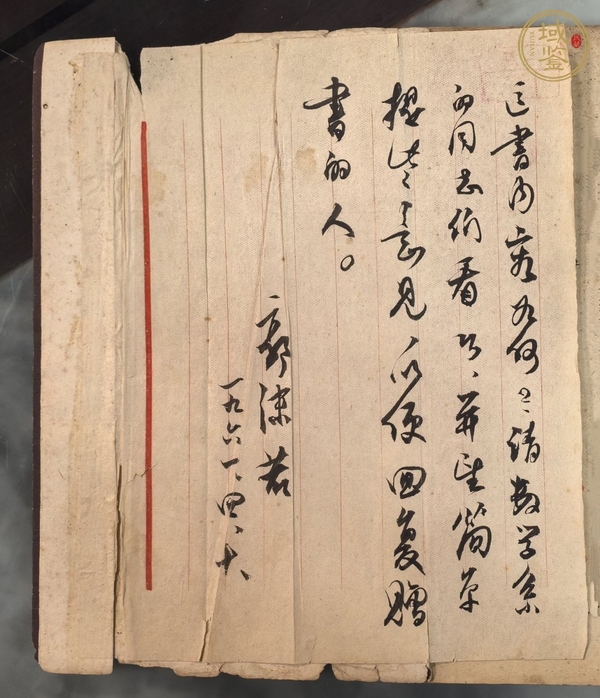 这书内容如何？请数学系
的同志们看看，并望简单
提些意见，以便回复赠
书的人。
郭沫若
一九六一、四、十
域鉴